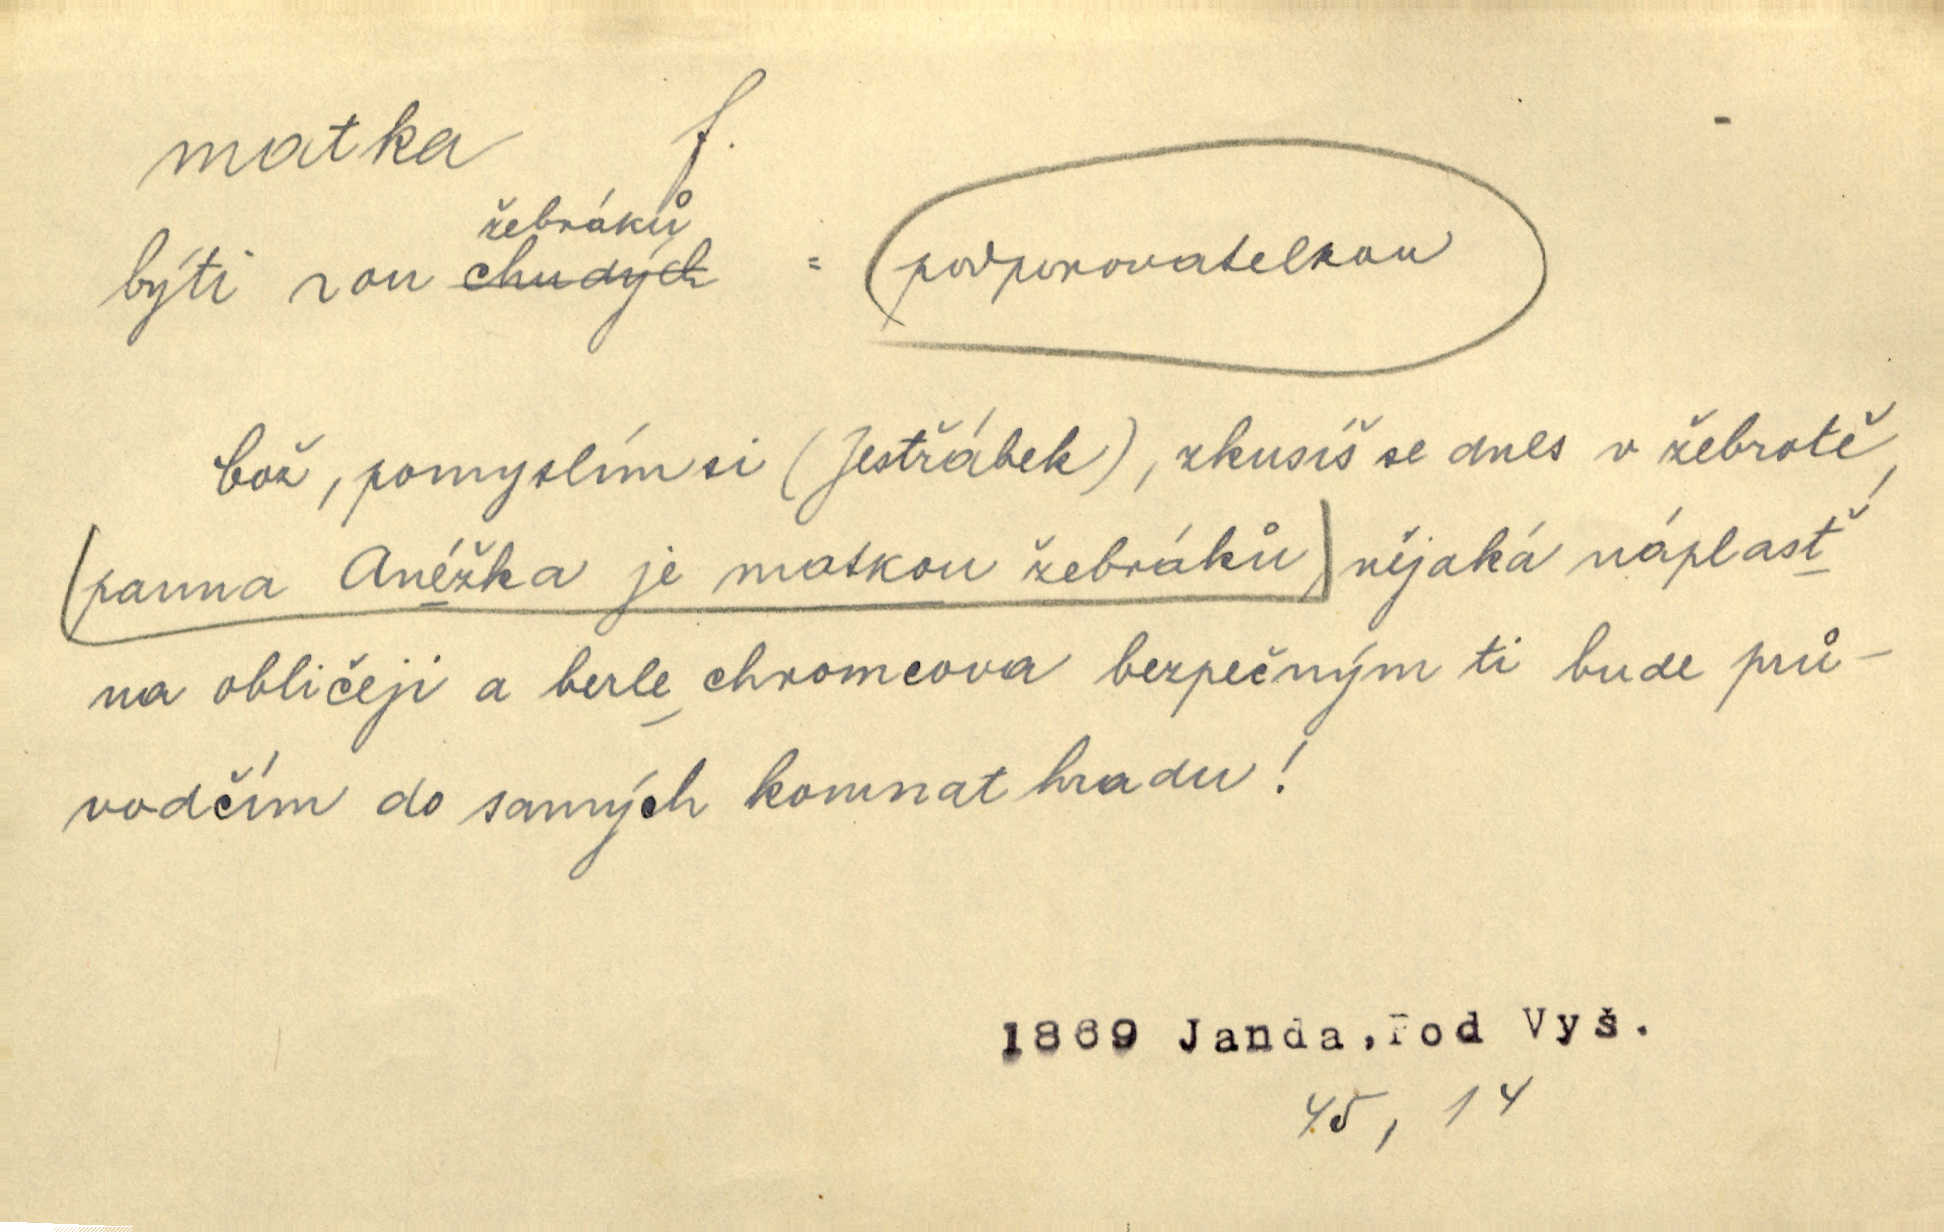 matka f.
žebráků
býti ~ou chudých = podporovatelkou
což, pomyslím si (Jestřábek), zkusíš se dnes v žebrotě,
panna Anéžka je matkou žebráků, nějaká náplasť
na obličeji a berle chromcova bezpečným ti bude prů-
vodčím do samých komnat hradu!
1869 Janda, Pod Vyš.
45, 14